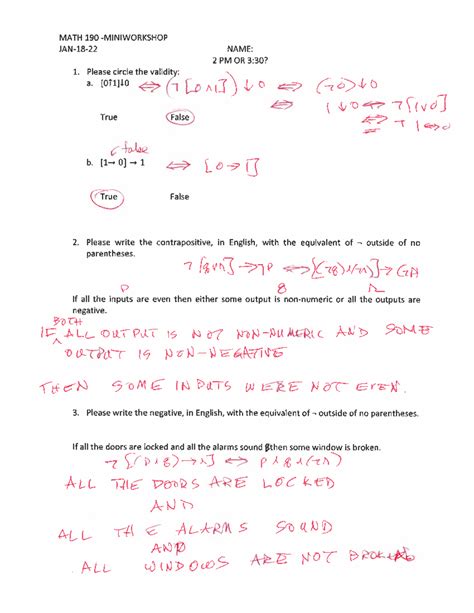 MATH 190 -MINIWORKSHOP
JAN-18-22 NAME:
2 PM OR 3:30?
1. Please circle the validity:
a. [0↑1]↓0 ⇔ (¬[0∧1])↓0 ⇔ (¬0)↓0
⇔ 1↓0 ⇔ ¬[1∨0]
⇔ ¬1 ⇔ 0
True False
false
b. [1→ 0] → 1 ⇔ [0→1]
True False
2. Please write the contrapositive, in English, with the equivalent of ¬ outside of no
parentheses.
If all the inputs are even then either some output is non-numeric or all the outputs are
negative.
BOTH
IF ALL OUTPUT IS NOT NON-NUMERIC AND SOME
OUTPUT IS NON-NEGATIVE
THEN SOME INPUTS WERE NOT EVEN.
3. Please write the negative, in English, with the equivalent of ¬ outside of no parentheses.
If all the doors are locked and all the alarms sound then some window is broken.
ALL THE DOORS ARE LOCKED
AND
ALL THE ALARMS SOUND
AND
ALL WINDOWS ARE NOT BROKEN